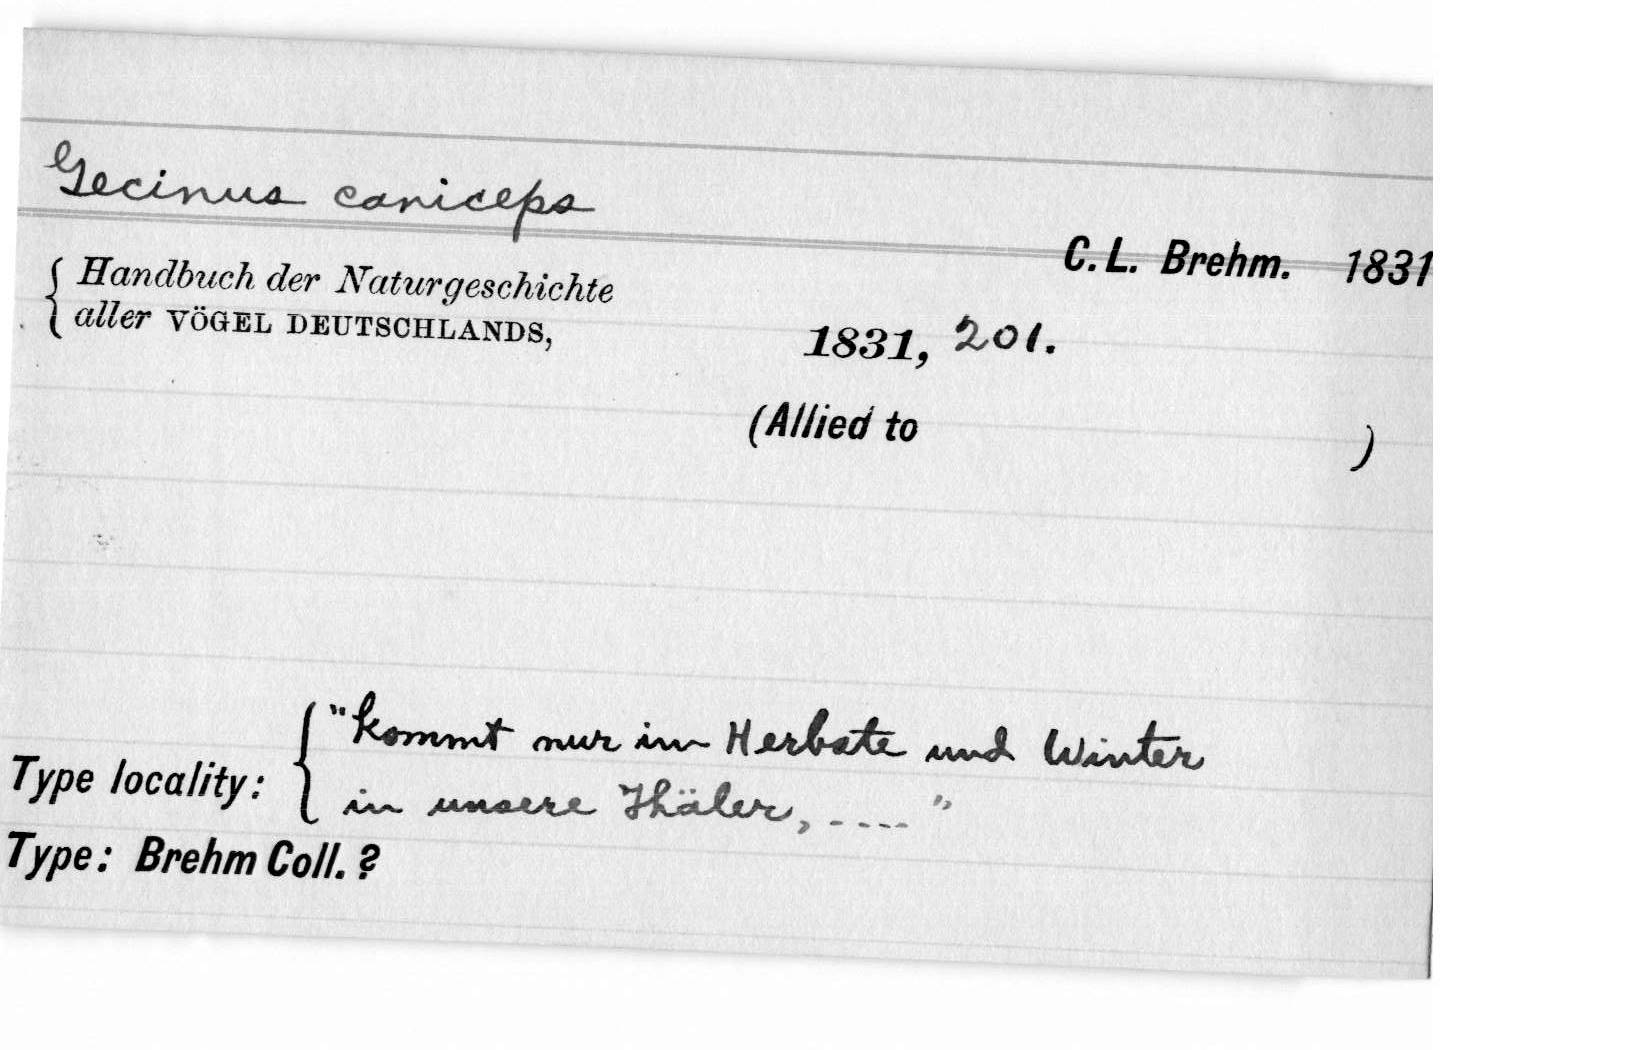 Gecinus caniceps
C. L. Brehm. 1831
Handbuch der Naturgeschichte
aller VÖGEL DEUTSCHLANDS,
1831, 201.
(Allied to )
"kommt nur im Herbste und Winter
Type locality: in unsere Thäler, ....."
Type: Brehm Coll. ?